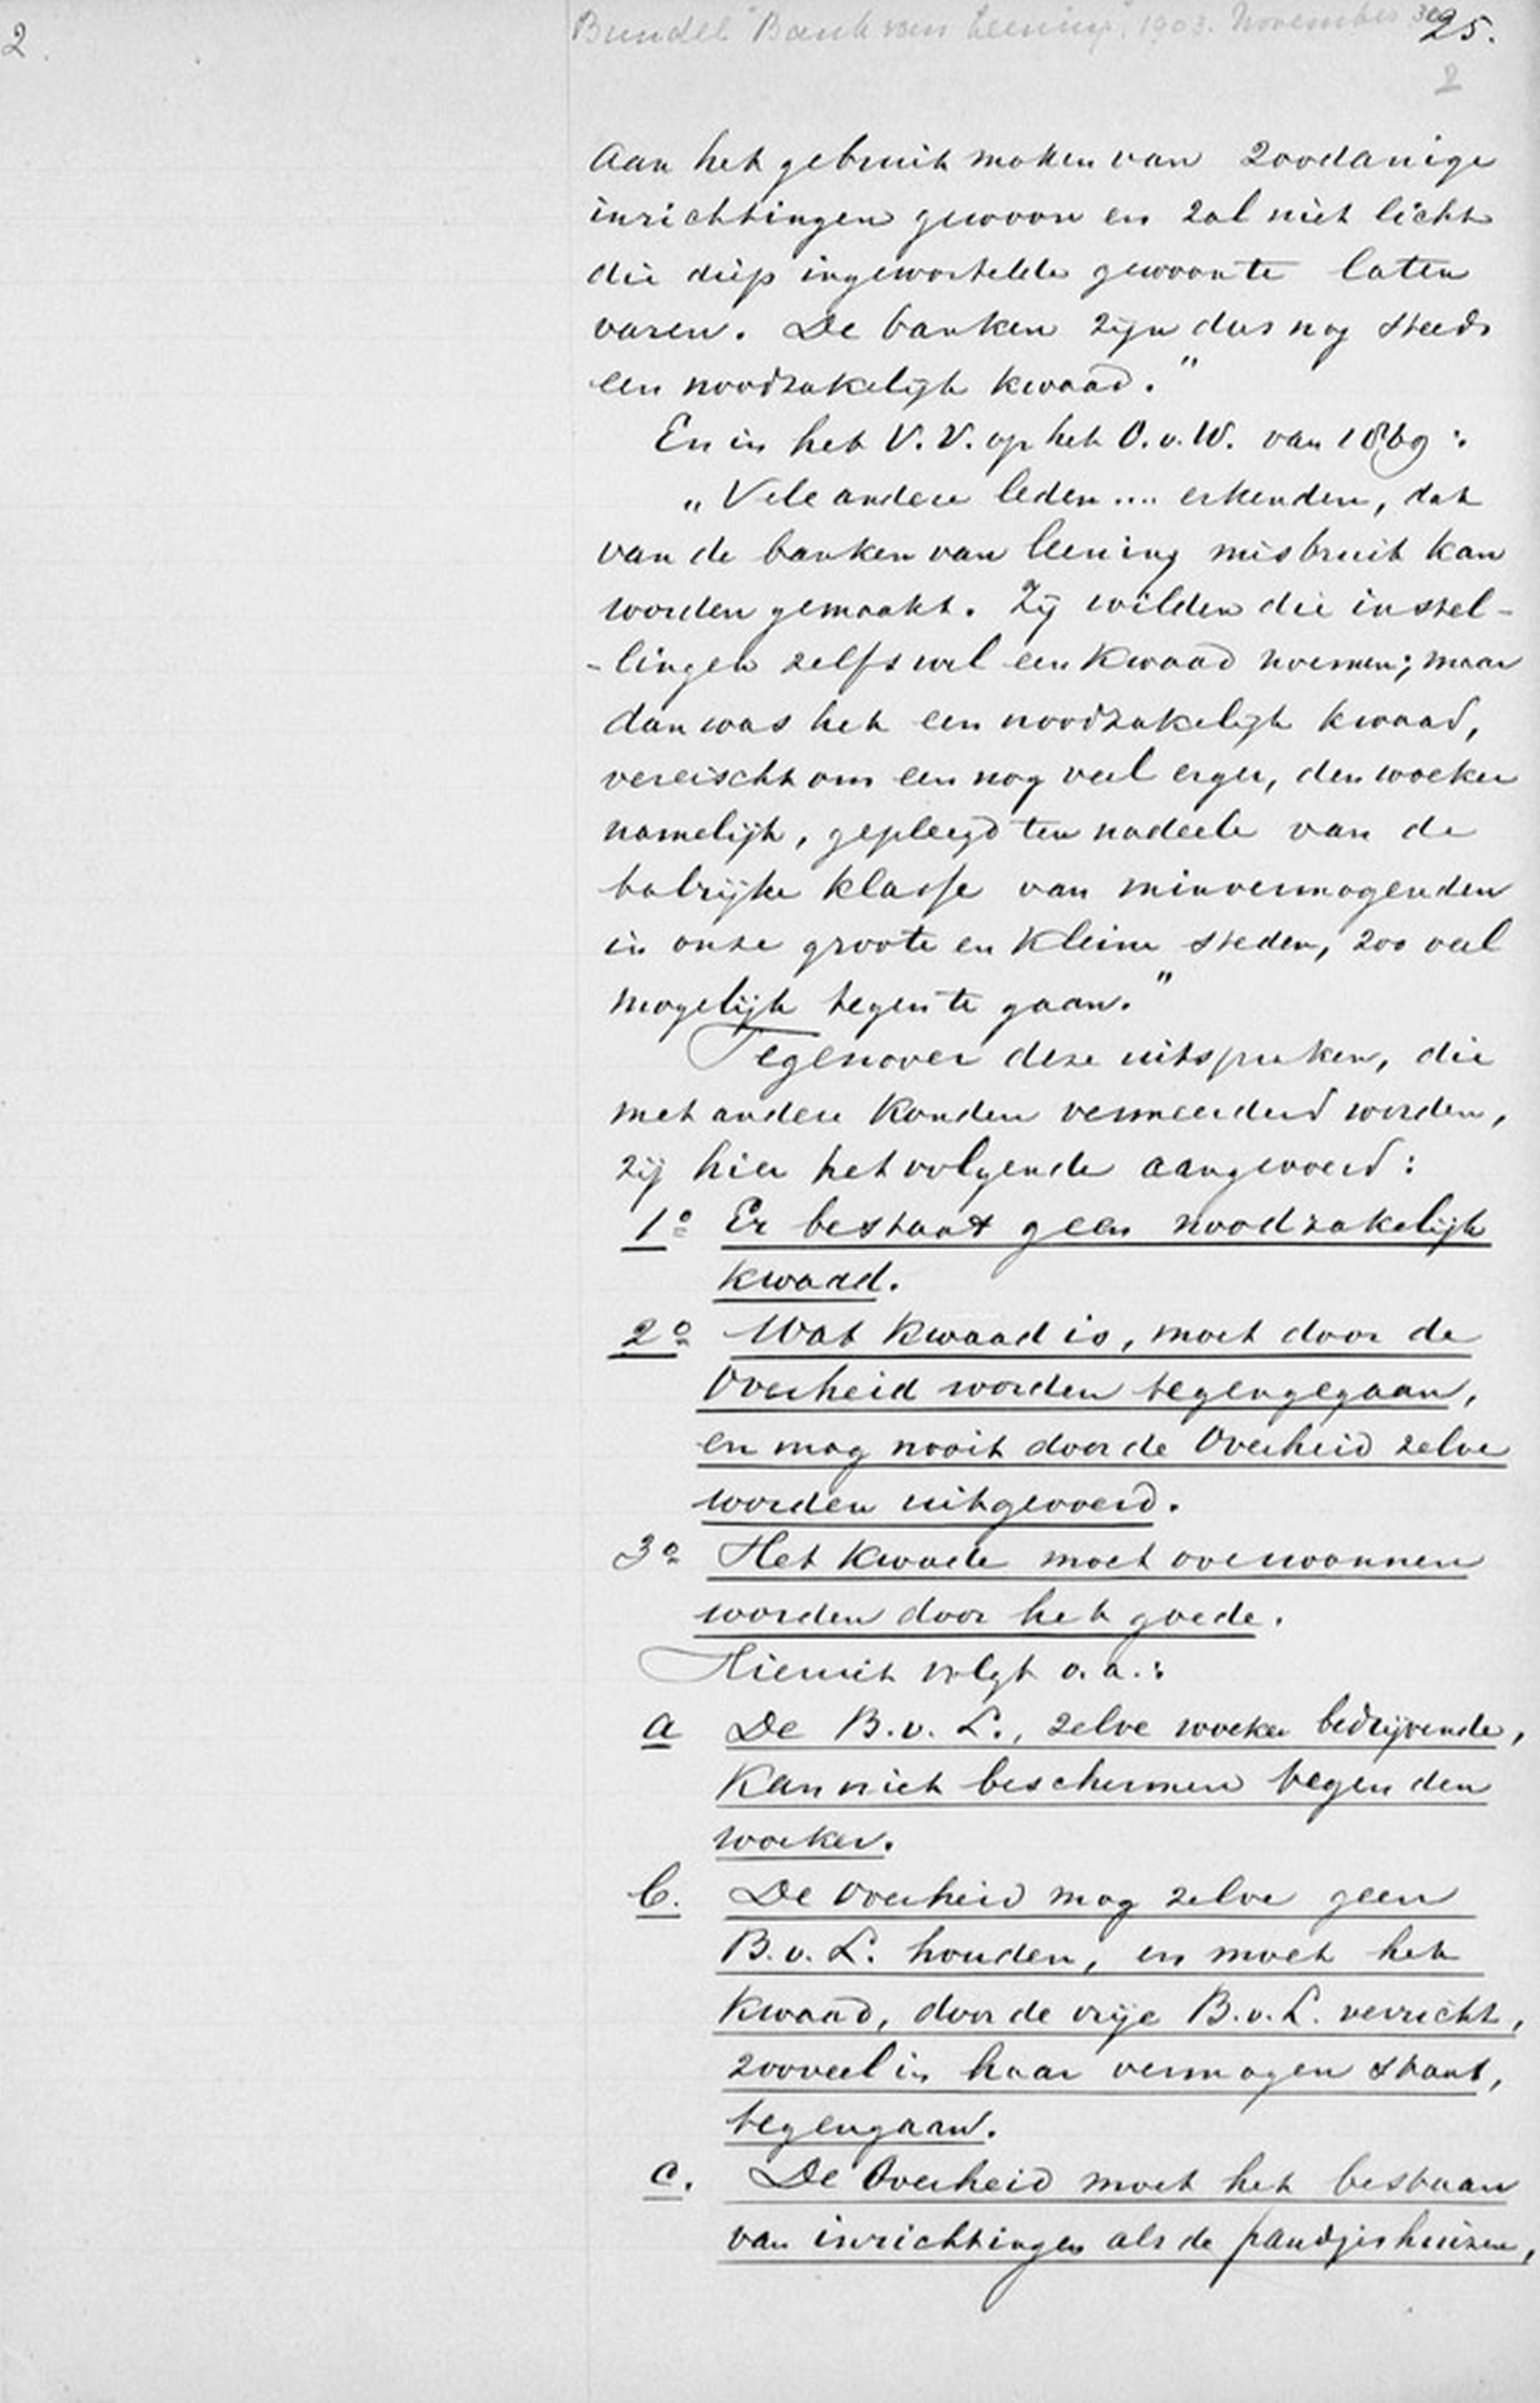 2.
Bundel "Bank van Leening", 1903. November 30
25.
2
aan het gebruik maken van zoodanige
inrichtingen gewoon en zal niet licht
die diep ingewortelde gewoonte laten
varen. De banken zijn dus nog steeds
een noodzakelijk kwaad."
En in het V.V. op het O.v.W. van 1869:
„Vele andere leden .... erkenden, dat
van de banken van leening misbruik kan
worden gemaakt. Zij wilden die instel-
-lingen zelfs wel een kwaad noemen; maar
dan was het een noodzakelijk kwaad,
vereischt om een nog veel erger, den woeker
namelijk, gepleegd ten nadeele van de
talrijke klasse van minvermogenden
in onze groote en kleine steden, zoo veel
mogelijk tegen te gaan."
Tegenover deze uitspraken, die
met andere konden vermeerderd worden,
zij hier het volgende aangevoerd:
1º Er bestaat geen noodzakelijk
kwaad.
2º Wat kwaad is, moet door de
Overheid worden tegengegaan,
en mag nooit door de Overheid zelve
worden uitgevoerd.
3º Het kwade moet overwonnen
worden door het goede.
Hieruit volgt o.a.:
a De B.v.L., zelve woeker bedrijvende,
kan niet beschermen tegen den
woeker.
b. De Overheid mag zelve geen
B.v.L. houden, en moet het
kwaad, door de vrije B.v.L. verricht,
zooveel in haar vermogen staat,
tegengaan.
c. De Overheid moet het bestaan
van inrichtingen als de pandjeshuizen,